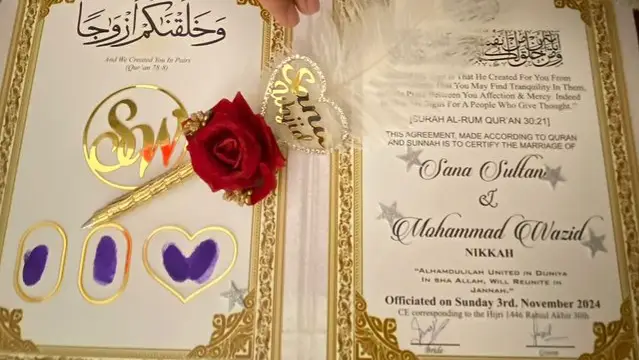 وَخَلَقْنَاكُمْ أَزْوَاجًا
And We Created You In Pairs
(Qur'an 78:8)
SW
Sana
Wajid
Is That He Created For You From
That You May Find Tranquility In Them,
Between You Affection & Mercy. Indeed
Signs For A People Who Give Thought."
[SURAH AL-RUM QUR'AN 30:21]
THIS AGREEMENT, MADE ACCORDING TO QURAN
AND SUNNAH IS TO CERTIFY THE MARRIAGE OF
Sana Sultan
&
Mohammad Wazid
NIKKAH
"ALHAMDULILAH UNITED IN DUNIYA
IN SHA ALLAH, WILL REUNITE IN
JANNAH."
Officiated on Sunday 3rd. November 2024
CE corresponding to the Hijri 1446 Rabiul Akhir 30th
Bride